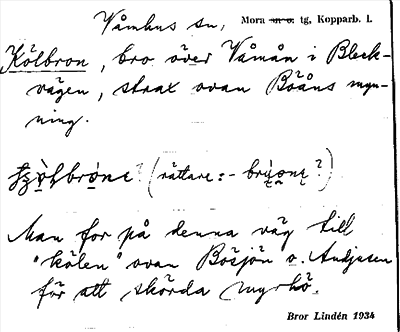 Våmhus sn, Mora sn o. tg, Kopparb. l.
Kölbron, bro över Våmån i Bleck-
vägen, strax ovan Böåns myn-
ning.
(rättare: -
Man for på denna väg till
"kölen" ovan Bösjön o. Andjusen
för att skörda myrhö.
Bror Lindén 1934